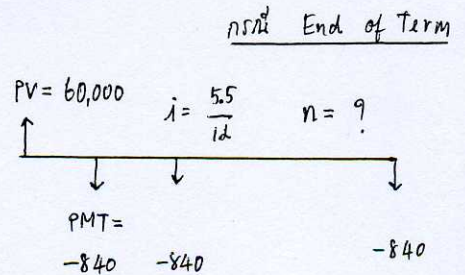 กรณี End of Term
PV = 60,000
i = 5.5 / 12
n = ?
PMT =
-840 -840 -840